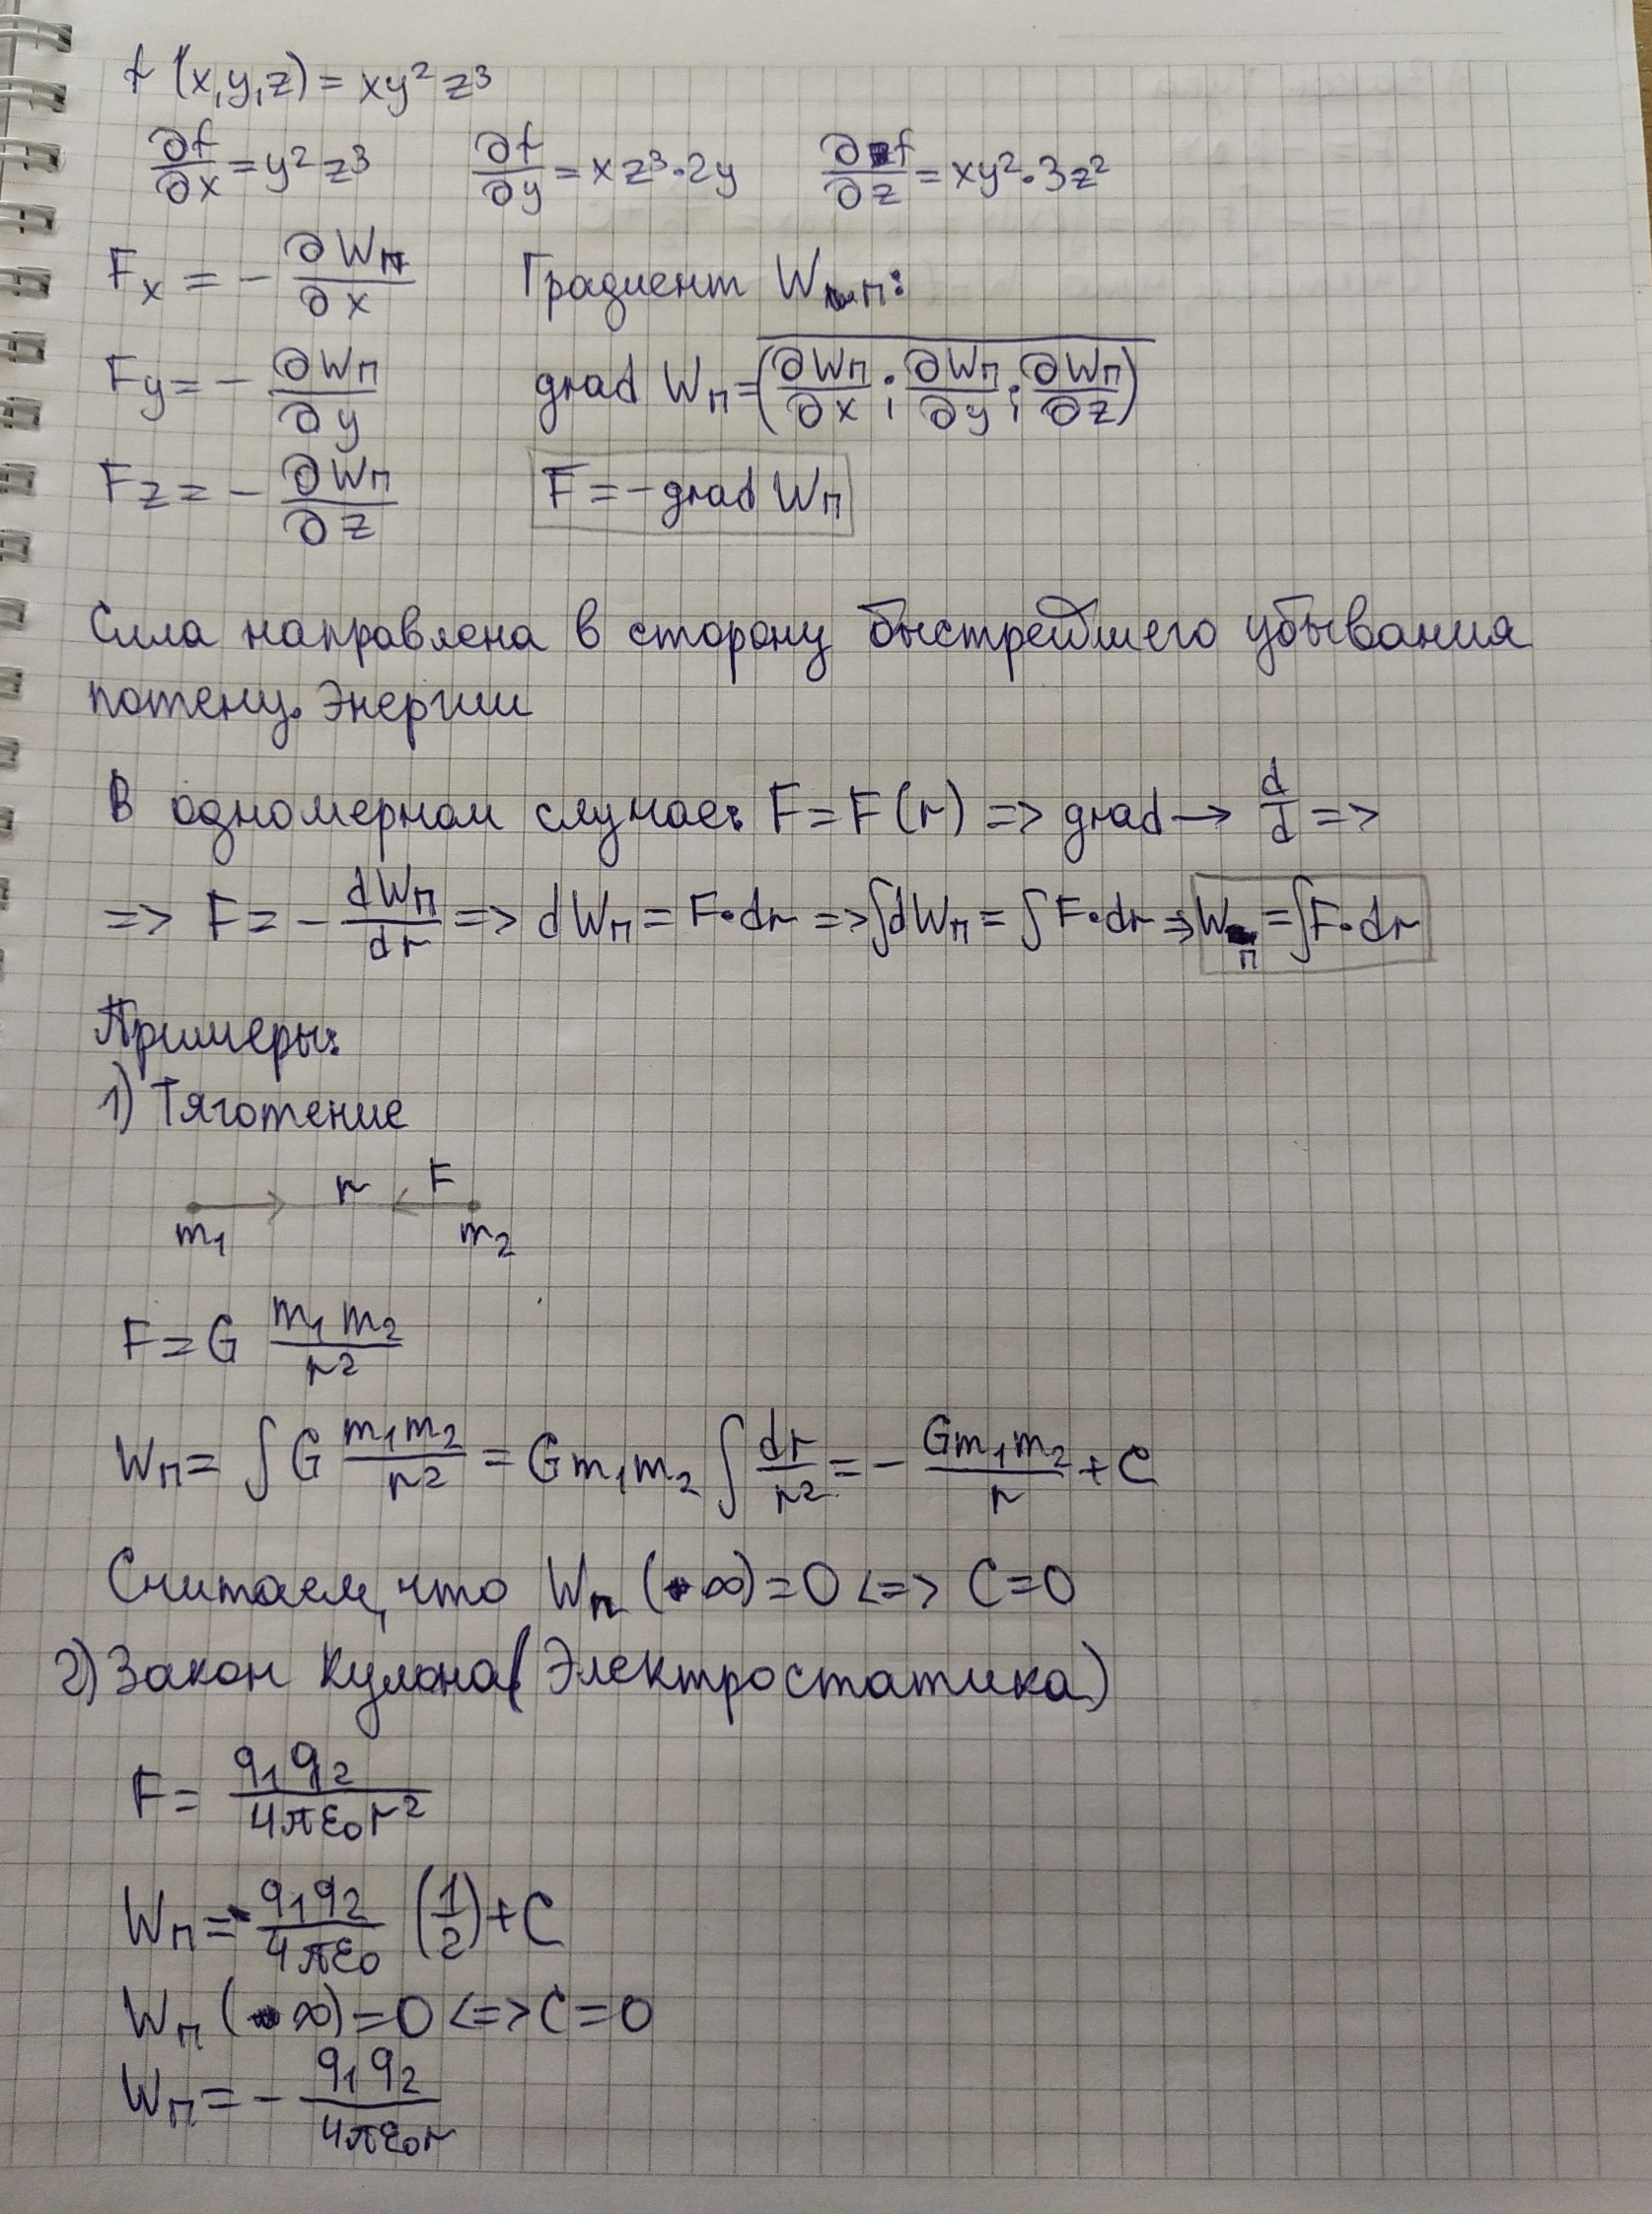 f(x,y,z) = xy² z³
∂f/∂x = y² z³   ∂f/∂y = x z³·2y   ∂f/∂z = xy²·3z²
Fx = - ∂Wп/∂x   Градиент Wп:
Fy = - ∂Wп/∂y   grad Wп = (∂Wп/∂x; ∂Wп/∂y; ∂Wп/∂z)
Fz = - ∂Wп/∂z   F = -grad Wп
Сила направлена в сторону быстрейшего убывания
потенц. энергии
В одномерном случае: F = F(r) => grad → d/d =>
=> F = - dWп/dr => dWп = F·dr => ∫dWп = ∫F·dr => Wп = ∫F·dr
Примеры:
1) Тяготение
r F
m₁ m₂
F = G m₁ m₂/r²
Wп = ∫ G m₁m₂/r² = Gm₁m₂ ∫ dr/r² = - Gm₁m₂/r + C
Считаем, что Wп (∞) = 0 <=> C = 0
2) Закон Кулона (Электростатика)
F = q₁q₂/4πε₀r²
Wп = - q₁q₂/4πε₀ (1/2) + C
Wп (∞) = 0 <=> C = 0
Wп = - q₁q₂/4πε₀r